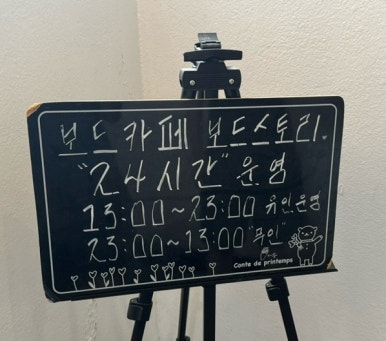 보드카페 보드스토리.
"24시간" 운영
13:00~23:00 유인운영
23:00~13:00 "무인"
Conte de printemps